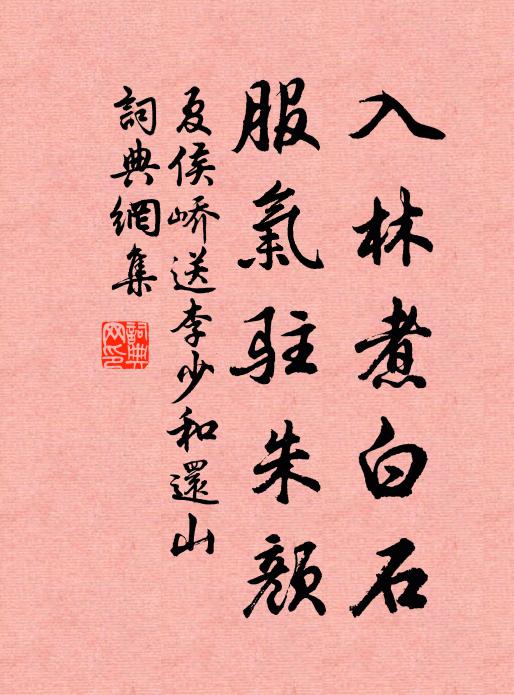 入林煮白石
服氣駐朱顏
夏侯嶠送李少和還山
詞典網集
詞典网印